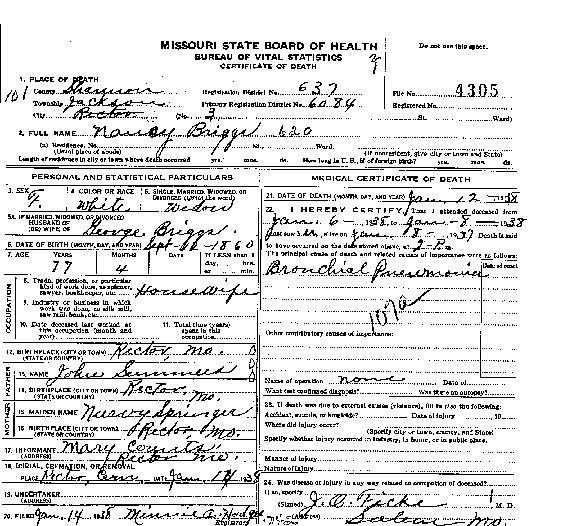 MISSOURI STATE BOARD OF HEALTH
Do not use this space.
BUREAU OF VITAL STATISTICS
CERTIFICATE OF DEATH
1. PLACE OF DEATH
County Shannon Registration District No. 637 File No. 4305
Township Jackson Primary Registration District No. 6084 Registered No.
City Rector (No. 3 St. Ward)
2. FULL NAME Nancy Briggs 620
(a) Residence, No. St. Ward.
(Usual place of abode) (If nonresident, give city or town and State)
Length of residence in city or town where death occurred yrs. mos. ds. How long in U. S., if of foreign birth? yrs. mos. ds.
PERSONAL AND STATISTICAL PARTICULARS
3. SEX F. 4. COLOR OR RACE White 5. SINGLE, MARRIED, WIDOWED, OR DIVORCED (write the word) Widow
5A. IF MARRIED, WIDOWED, OR DIVORCED
HUSBAND OF
(OR) WIFE OF George Briggs
6. DATE OF BIRTH (MONTH, DAY, AND YEAR) Sept 1860
7. AGE YEARS 77 MONTHS 4 DAYS If LESS than 1 day, hrs. or min.
OCCUPATION
8. Trade, profession, or particular kind of work done, as spinner, sawyer, bookkeeper, etc. Housewife
9. Industry or business in which work was done, as silk mill, saw mill, bank, etc.
10. Date deceased last worked at this occupation (month and year) 11. Total time (years) spent in this occupation
12. BIRTHPLACE (CITY OR TOWN) Rector Mo.
(STATE OR COUNTRY)
FATHER
13. NAME John
14. BIRTHPLACE (CITY OR TOWN) Rector
(STATE OR COUNTRY) Mo.
MOTHER
15. MAIDEN NAME Springer
16. BIRTHPLACE (CITY OR TOWN) Rector
(STATE OR COUNTRY) Mo.
17. INFORMANT Mary Counts
(ADDRESS) Rector Mo.
18. BURIAL, CREMATION, OR REMOVAL
PLACE Rector Cem DATE Jan. 1938
19. UNDERTAKER
(ADDRESS)
20. FILED Jan. 14 1938 Minnie A.
Registrar
MEDICAL CERTIFICATE OF DEATH
21. DATE OF DEATH (MONTH, DAY, AND YEAR) Jan. 12 - 1938
22. I HEREBY CERTIFY, That I attended deceased from
Jan. 6 - 1938 to Jan - 8 - 1938
I last saw alive on Jan - 8 - 1937 Death is said
to have occurred on the date stated above, at 2 P.m.
The principal cause of death and related causes of importance were as follows:
Date of onset
Bronchial Pneumonia
107a
Other contributory causes of importance:
Name of operation none Date of
What test confirmed diagnosis? Was there an autopsy?
23. If death was due to external causes (violence), fill in also the following:
Accident, suicide, or homicide? Date of injury 19
Where did injury occur?
(Specify city or town, county, and State)
Specify whether injury occurred in industry, in home, or in public place.
Manner of injury
Nature of injury
24. Was disease or injury in any way related to occupation of deceased?
If so, specify
(Signed) M. D.
(Address) Salem Mo.